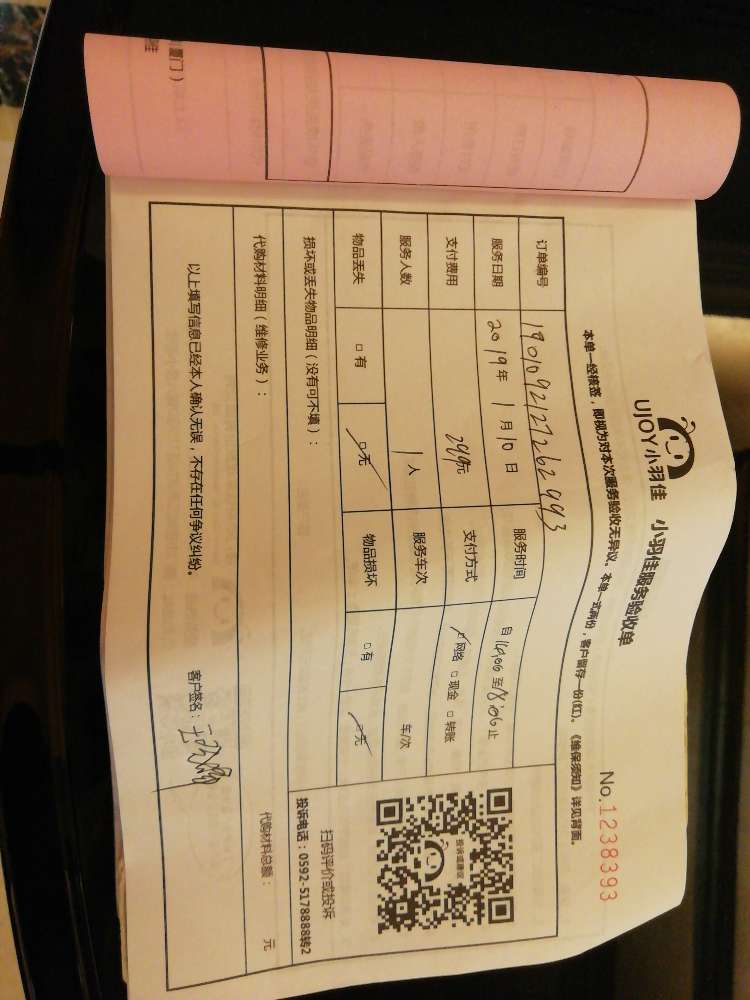 厦门）
UJOY小羽佳 小羽佳服务验收单
No.1238393
本单一经核签，即视为对本次服务验收无异议。本单一式两份，客户留存一份(红)。《维保须知》详见背面。
订单编号 1901092127262993
服务日期 2019年 1月10日 服务时间 自 至 止
支付费用 299元 支付方式 网络 □现金 □转账
服务人数 1人 服务车次 车/次
物品丢失 □有 □无 物品损坏 □有 □无
损坏或丢失物品明细（没有可不填）：
扫码评价或投诉
投诉电话：0592-5178888转2
代购材料明细（维修业务）：
代购材料总额： 元
以上填写信息已经本人确认无误，不存在任何争议纠纷。
客户签名：